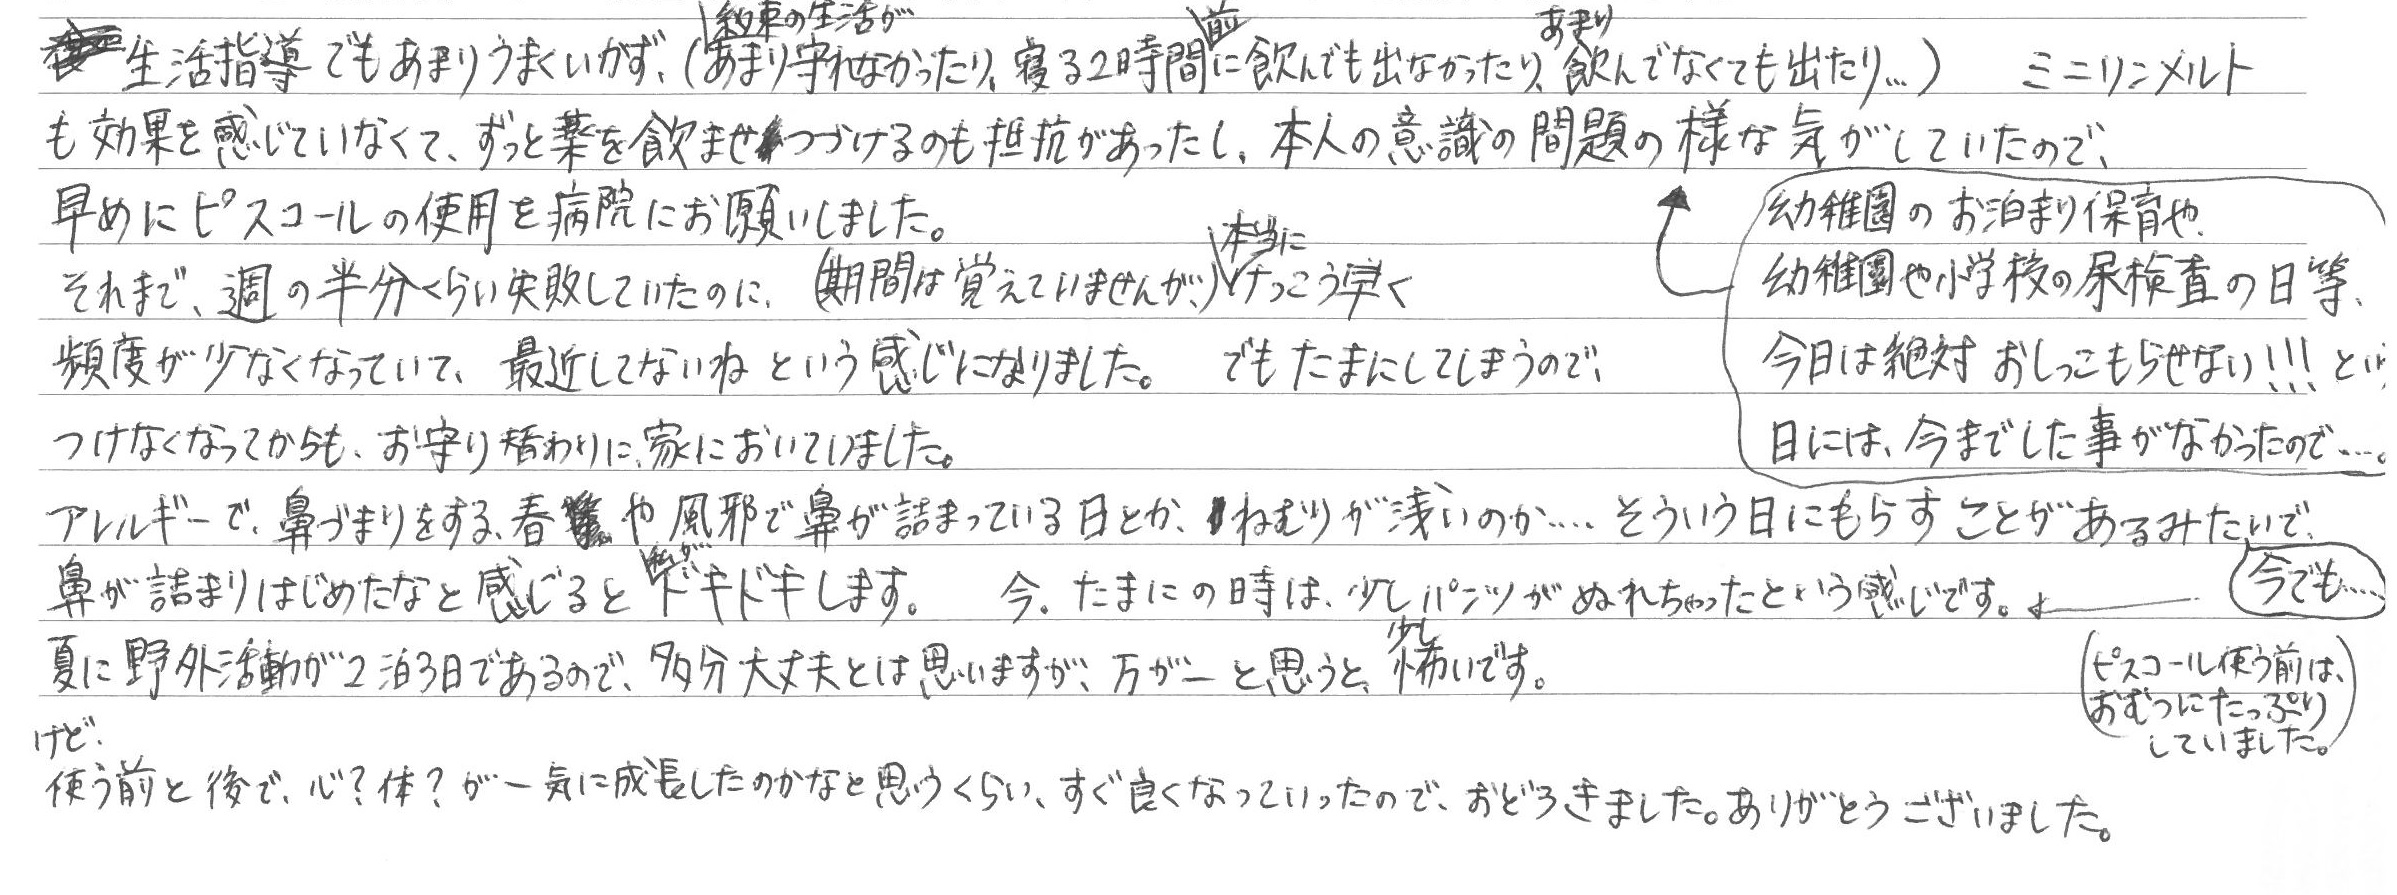 生活指導でもあまりうまくいかず、(約束の生活があまり守れなかったり、寝る2時間前に飲んでも出なかったり、あまり飲んでなくても出たり…) ミニリンメルト
も効果を感じていなくて、ずっと薬を飲ませつづけるのも抵抗があったし、本人の意識の問題の様な気がしていたので、
早めにピスコールの使用を病院にお願いしました。
それまで、週の半分くらい失敗していたのに、(期間は覚えていませんが、)本当にけっこう早く
頻度が少なくなっていて、最近してないねという感じになりました。 でもたまにしてしまうので、
つけなくなってからも、お守り替わりに、家においていました。
幼稚園のお泊まり保育や、
幼稚園や小学校の尿検査の日等、
今日は絶対おしっこもらせない!!!とい
日には、今までした事がなかったので…。
アレルギーで、鼻づまりをする、春や風邪で鼻が詰まっている日とか、ねむりが浅いのか…. そういう日にもらすことがあるみたいで、
今でも…..
鼻が詰まりはじめたなと感じると私が…ドキドキします。 今、たまにの時は、少しパンツがぬれちゃったという感じです。
(ピスコール使う前は、
おむつにたっぷり
していました。)
夏に野外活動が2泊3日であるので、多分大丈夫とは思いますが、万が一と思うと、少し怖いです。
けど、
使う前と後で、心?体?が一気に成長したのかなと思うくらい、すぐ良くなっていったので、おどろきました。ありがとうございました。